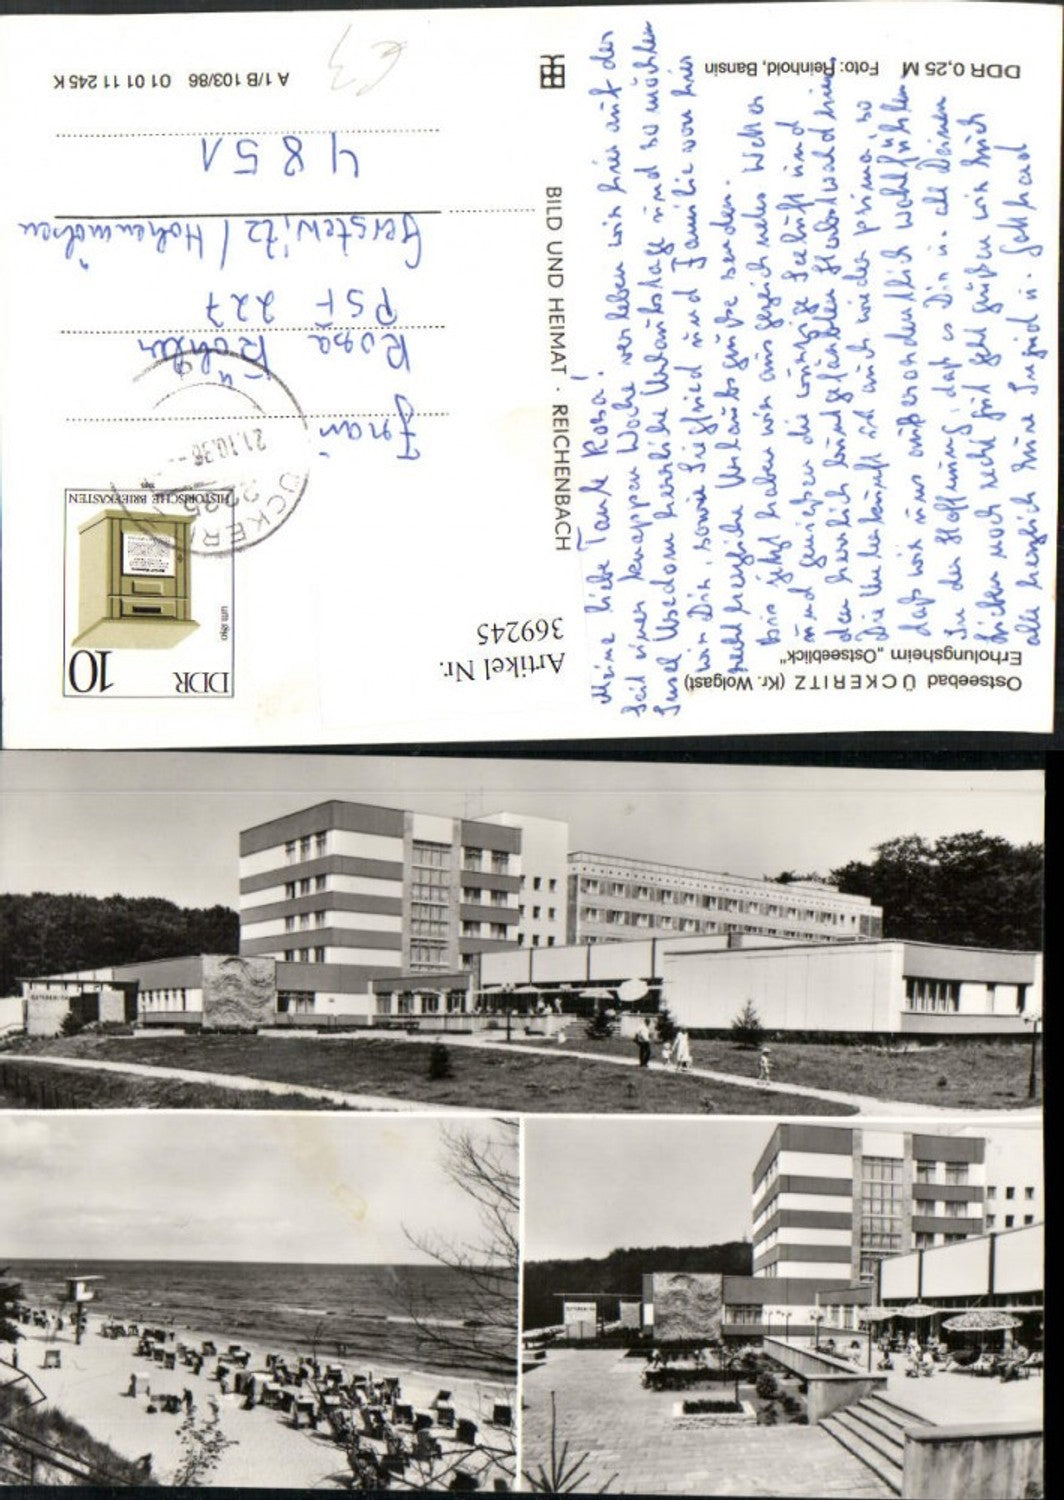 Ostseebad ÜCKERITZ (Kr. Wolgast)
Erholungsheim „Ostseeblick"
DDR 0,25 M Foto: Reinhold, Bansin
Meine liebe Tante Rosa!
Seit einer knappen Woche verleben wir hier auf der
Insel Usedom herrliche Urlaubstage und so möchten
wir Dir, sowie Siegfried und Familie von hier
recht herzliche Urlaubsgrüße senden.
Bis jetzt haben wir ausgezeichnetes Wetter
und genießen die würzige Seeluft und
den herrlich buntgefärbten Herbstwald hier.
Die Unterkunft ist auch wieder prima, so
daß wir uns außerordentlich wohlfühlen.
In der Hoffnung, daß es Dir u. all Deinen
Lieben noch recht gut geht grüßen wir Euch
alle herzlich Eure Ingrid u. Gotthard
BILD UND HEIMAT · REICHENBACH
Artikel Nr.
369245
DDR
10
um 1890
HISTORISCHE BRIEFKASTEN
1985
ÜCKERI
2235
21.10.86
Frau
Rosa Köhler
PSF 227
Gerstewitz / Hohenmölsen
4851
A 1/B 103/86 01 01 11 245 K
€3
OSTSEEBLICK